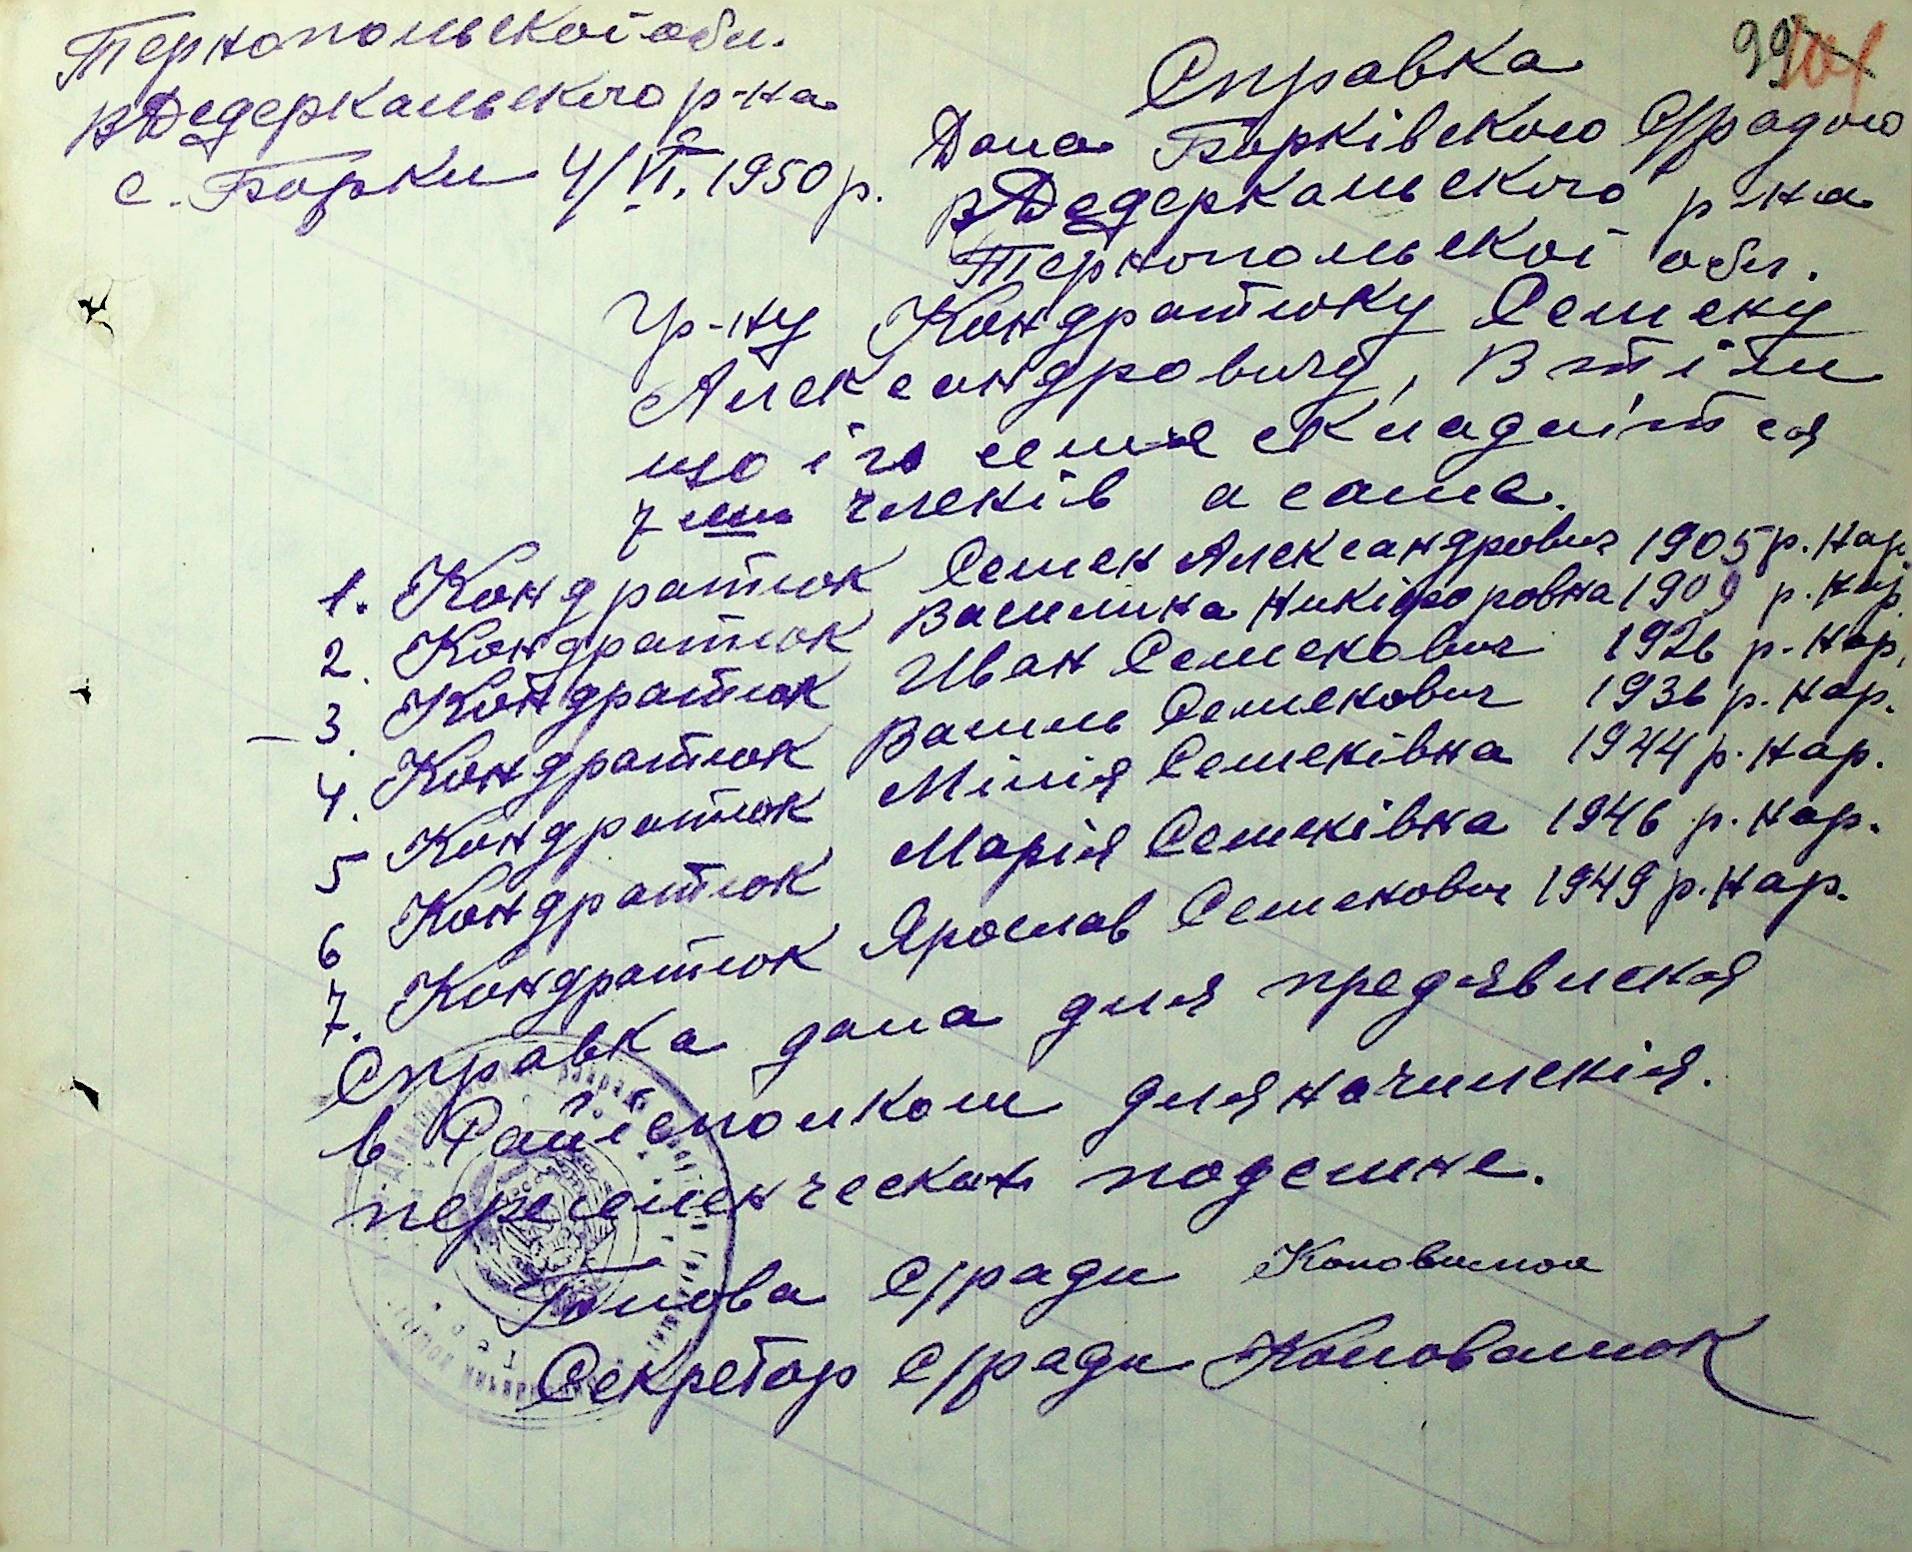 Тернопольскої обл.
ВДедеркальского р-на
с. Борки 4/VI. 1950 р.
99
101
Справка
Дана Борківскою С/радою
ВДедеркальского р-на
Тернопольскої обл.
Гр-ну Кондратюку Семену
Александровичу, В тім
що іго семя складаітся
7 ми членів а саме.
1. Кондратюк Семен Александрович 1905 р. нар.
2. Кондратюк Василина Никіфоровна 1909 р. нар.
3. Кондратюк Иван Семенович 1926 р. нар.
4. Кондратюк Василь Семенович 1936 р. нар.
5 Кондратюк Мілія Семенівна 1944 р. нар.
6 Кондратюк Марія Семенівна 1946 р. нар.
7. Кондратюк Ярослав Семенович 1949 р. нар.
Справка дана для предявленя
в Райісполком для начисленія.
Голова С/ради
Секретар С/ради Коновалюк